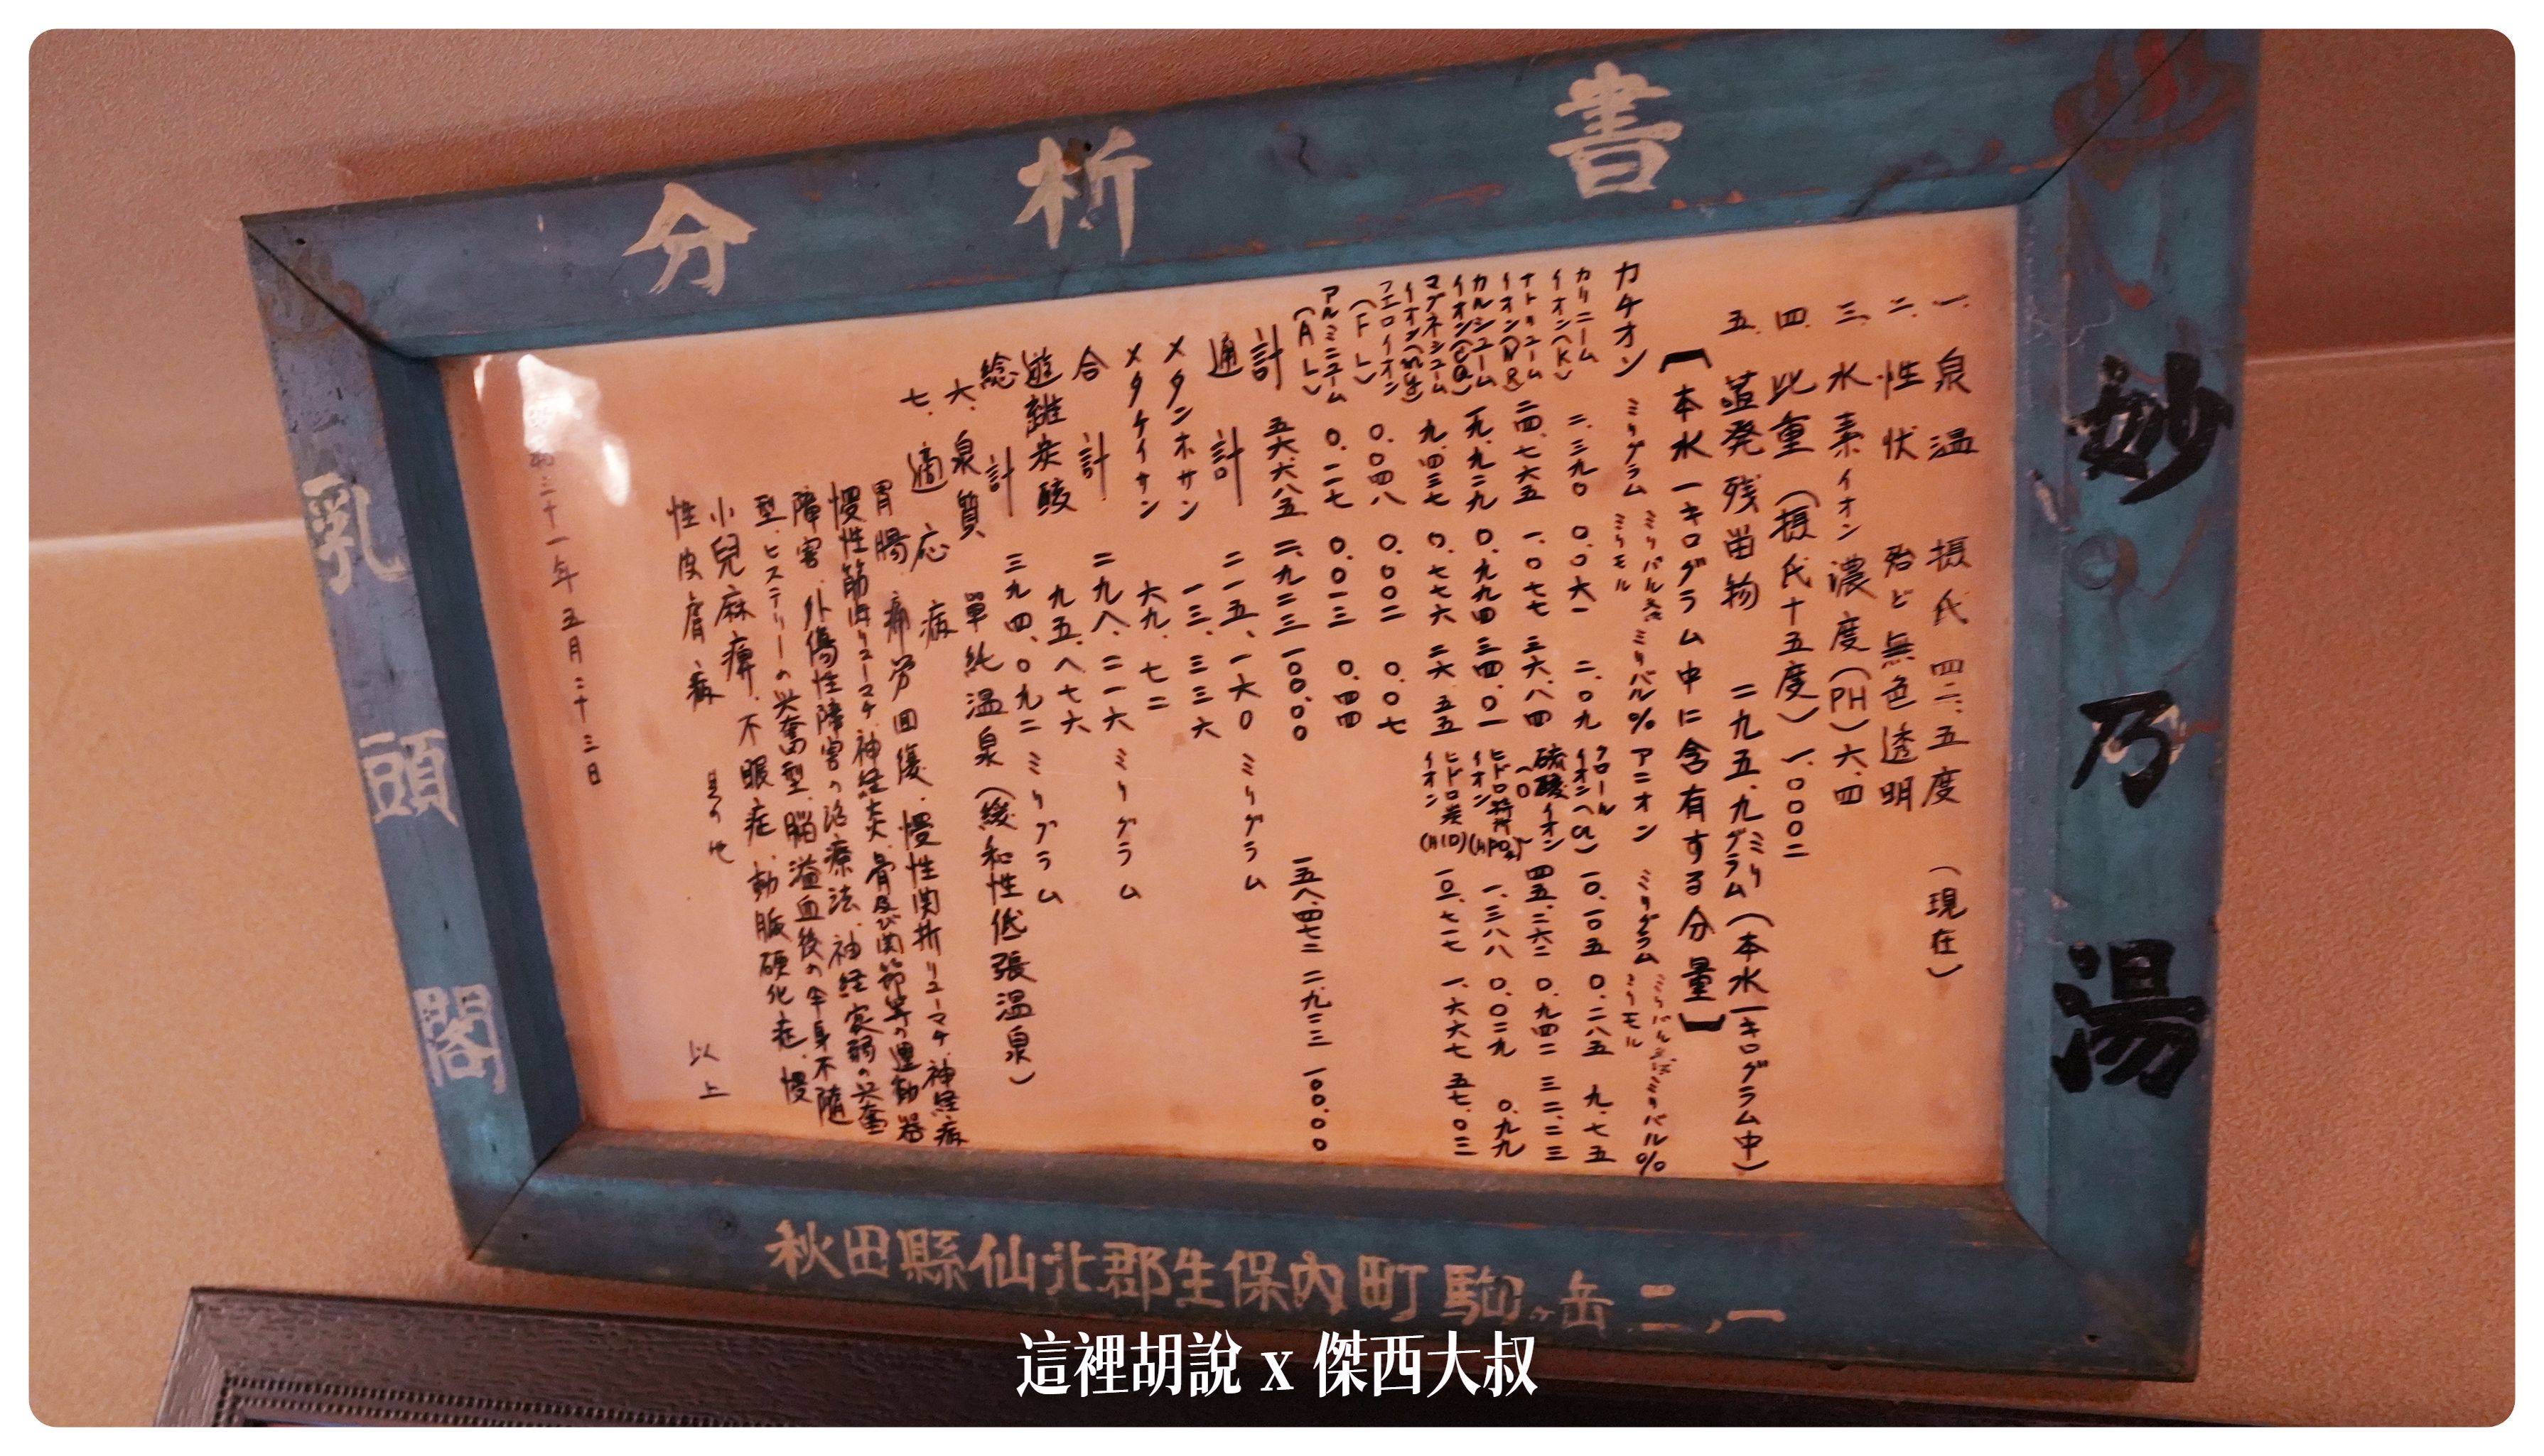 分析書
妙乃湯
一. 泉温 摂氏四二.五度 (現在)
二. 性状 殆ど無色透明
三. 水素イオン濃度(PH)六.四
四. 比重(摂氏十五度)一.〇〇〇二
五. 蒸発残留物 二九五.九ミリグラム(本水一キログラム中)
【本水一キログラム中に含有する分量】
カチオン ミリグラム ミリバル ミリモル ミリバル% アニオン ミリグラム ミリバル ミリモル ミリバル%
カリューム イオン(K) 二.三九〇 〇.〇六一 二.〇九 クロール イオン(Cl) 一〇.一〇五 〇.二八五 九.七五
ナトリューム イオン 二四.七六五 一.〇七七 三六.八四 硫酸イオン 四五.二六二 〇.九四二 三二.二三
カルシューム イオン(Ca) 一九.九二九 〇.九九四 三四.〇一 ヒドロ イオン 一.三八八 〇.〇二九 〇.九九
マグネシューム イオン 九.四三七 〇.七七六 二六.五五 ヒドロ炭 イオン 一.六六七 五七.〇三
フエロイオン(FL) 〇.〇四八 〇.〇〇二 〇.〇七
アルミニューム(AL) 〇.一一七 〇.〇一三 〇.四四
計 五六.六八五 二.九二三 一〇〇.〇〇 一五八.四七二 二.九二三 一〇〇.〇〇
通計 二一五.一六〇ミリグラム
メタンホサン 一三.三三六
メタケイサン 六九.七二
合計 二九八.二一六ミリグラム
遊離炭酸 九五.八七六
総計 三九四.〇九二ミリグラム
六. 泉質 單純温泉(緩和性低張温泉)
七. 適応病
胃腸病 労回復.慢性関折リューマチ.神経病
慢性筋肉リューマチ.神経炎.骨及び関節等の運動器
障害.外傷性障害の治療法.神経衰弱の兴奮
型.ヒステリーの兴奮型.脳溢血後の半身不随
小兒麻痺.不眠症.動脈硬化症.慢
性皮膚病 其の他 以上
三十一年五月二十三日
乳頭閣
秋田縣仙北郡生保内町駒ヶ岳二,一
這裡胡說 x 傑西大叔